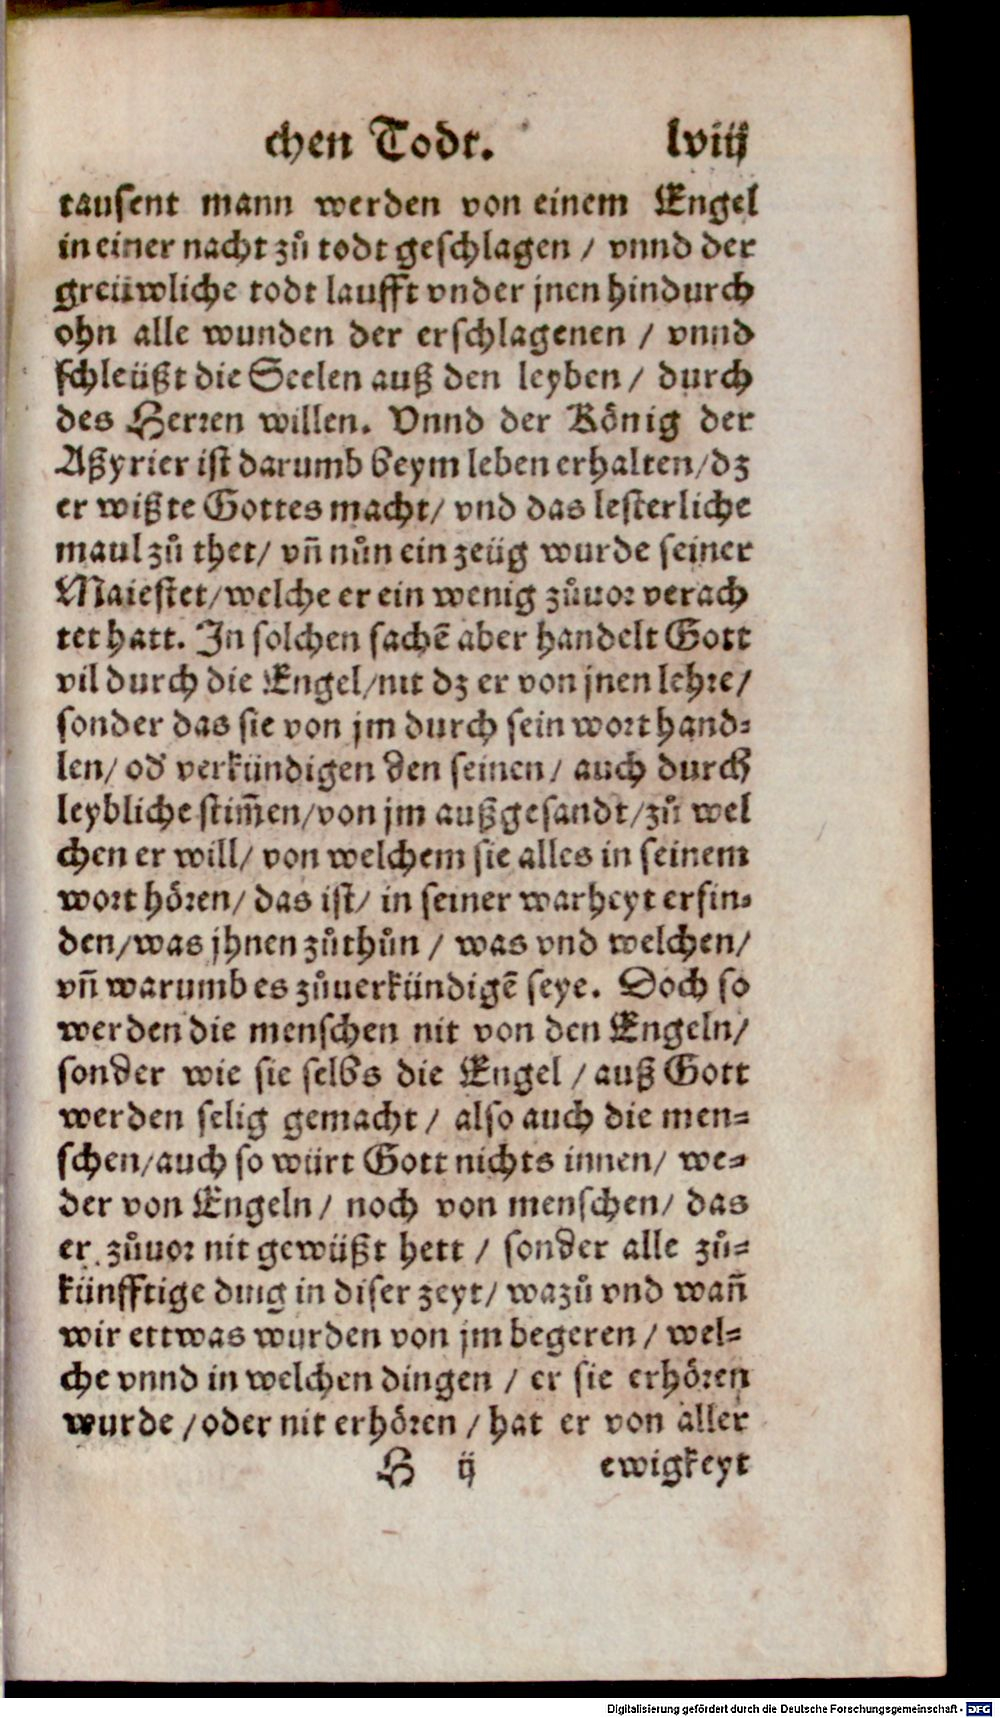 chen Todt. lviij
tausent mann werden von einem Engel
in einer nacht zů todt geschlagen / vnnd der
greüwliche todt laufft vnder jnen hindurch
ohn alle wunden der erschlagenen / vnnd
schleüßt die Seelen auß den leyben / durch
des Herren willen. Vnnd der König der
Aßyrier ist darumb beym leben erhalten / dz
er wißte Gottes macht / vnd das lesterliche
maul zů thet / vñ nůn ein zeüg wurde seiner
Maiestet / welche er ein wenig zůuor verach
tet hatt. In solchen sachẽ aber handelt Gott
vil durch die Engel / nit dz er von jnen lehre /
sonder das sie von jm durch sein wort hand-
len / od' verkündigen den seinen / auch durch
leybliche stim̃en / von jm außgesandt / zů wel
chen er will / von welchem sie alles in seinem
wort hören / das ist / in seiner warheyt erfin-
den / was jhnen zůthůn / was vnd welchen /
vñ warumb es zůuerkündigẽ seye. Doch so
werden die menschen nit von den Engeln /
sonder wie sie selbs die Engel / auß Gott
werden selig gemacht / also auch die men-
schen / auch so würt Gott nichts innen / we-
der von Engeln / noch von menschen / das
er zůuor nit gewüßt hett / sonder alle zů-
künfftige ding in diser zeyt / wazů vnd wañ
wir ettwas wurden von jm begeren / wel-
che vnnd in welchen dingen / er sie erhören
wurde / oder nit erhören / hat er von aller
H ij ewigkeyt
Digitalisierung gefördert durch die Deutsche Forschungsgemeinschaft - DFG